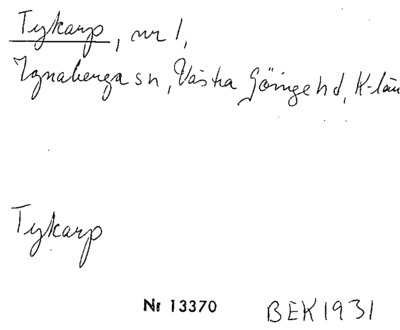 Tykarp, nr 1,
Ignaberga sn, Västra Göinge hd, K-län
Tykarp
Nr 13370 BEK1931